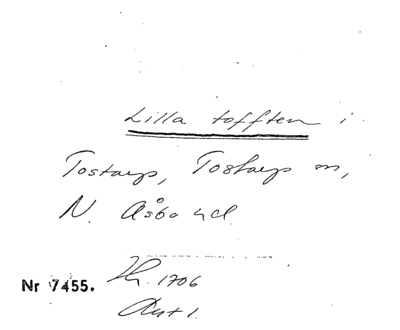 Lilla tofften i
Tostarp, Tostarps sn,
N. Åsbo hd.
Nr 7455.
1706